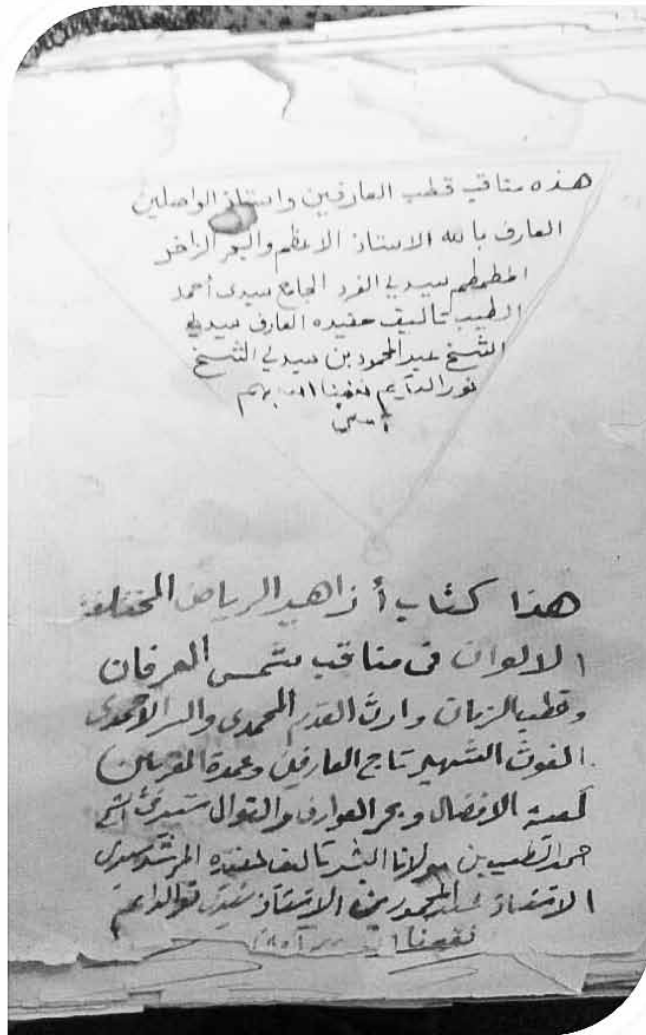 هذه مناقب قطب العارفين واستاذ الواصلين
العارف بالله الاستاذ الاعظم والبحر الزاخر
المطمطم سيدي الفرد الجامع سيدى أحمد
الطيب تاليف حفيده العارف سيدي
الشيخ عبد المحمود بن سيدي الشيخ
نور الدآيم نفعنا الله بهم
آمين
هذا كتاب أزاهير الرياض المختلفة
الالوان فى مناقب شمس العرفان
وقطب الزمان وارث القدم المحمدى والسر الاحمدى
الغوث الشهير تاج العارفين وعمدة المقربين
كعبة الافضال وبحر العوارف والنوال سيدى
الطيب بن مولانا البشير تاليف حفيده المرشد سيدى
الاستاذ عبد المحمود بن الاستاذ نور الدايم
نفعنا